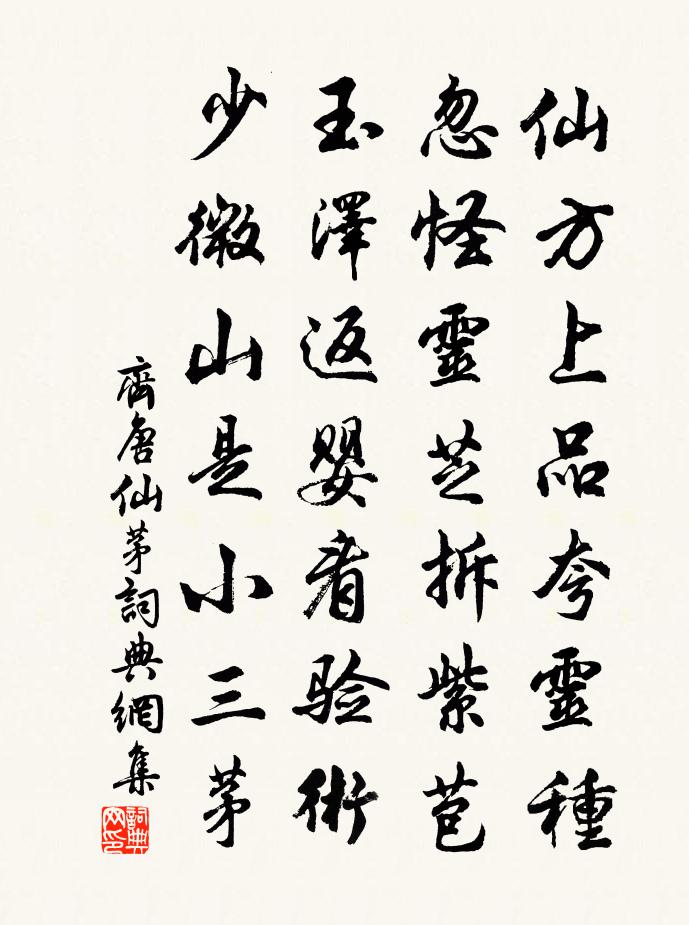 仙方上品夸靈種
忽怪靈芝拆紫苞
玉澤返嬰看验術
少微山是小三茅
齊唐仙茅詞典網集
詞典网印